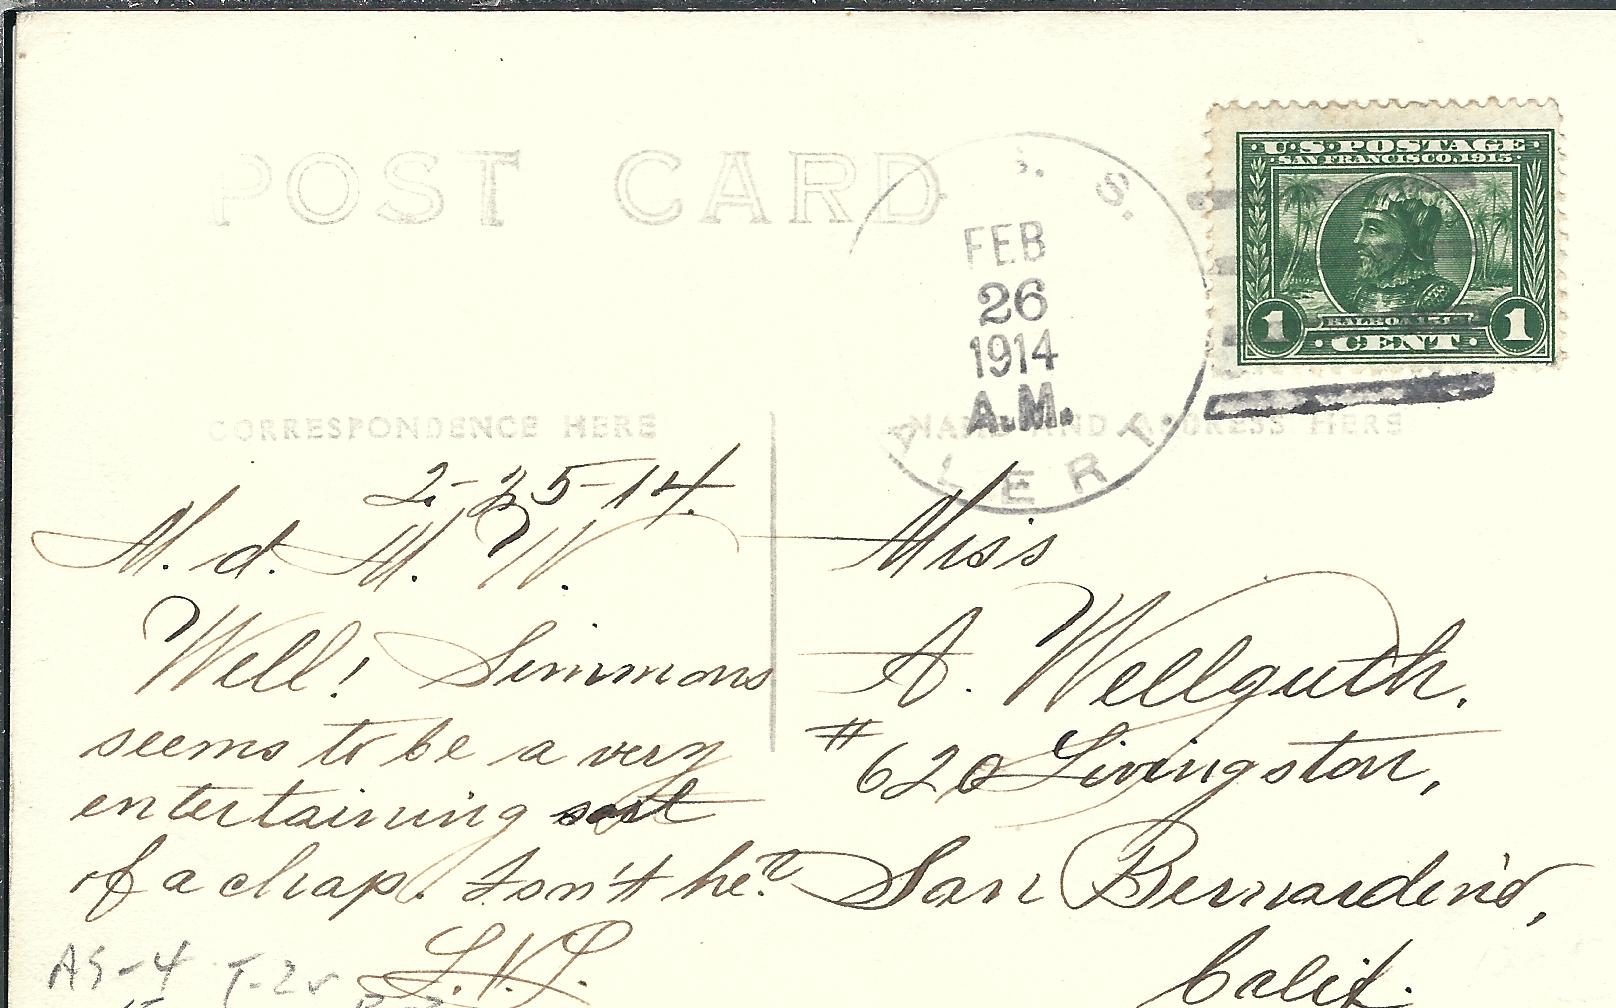 POST CARD
S. S.
FEB
26
1914
A.M.
ALERT
U.S. POSTAGE
SAN FRANCISCO, 1915
BALBOA 1513
1 CENT 1
CORRESPONDENCE HERE
NAME AND ADDRESS HERE
2-25-14.
M. d. M. W.
Well! Simmons
seems to be a very
entertaining sort
of a chap. Isn't he?
L.V.L.
Miss
A. Wellguth.
# 620 Livingston,
San Bernardino,
Calif.
AS-4 T-2v